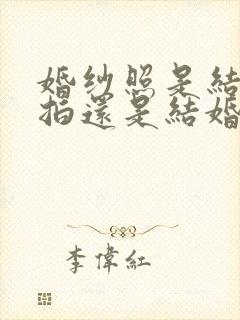 婚纱照是結
拍還是結婚
李偉紅